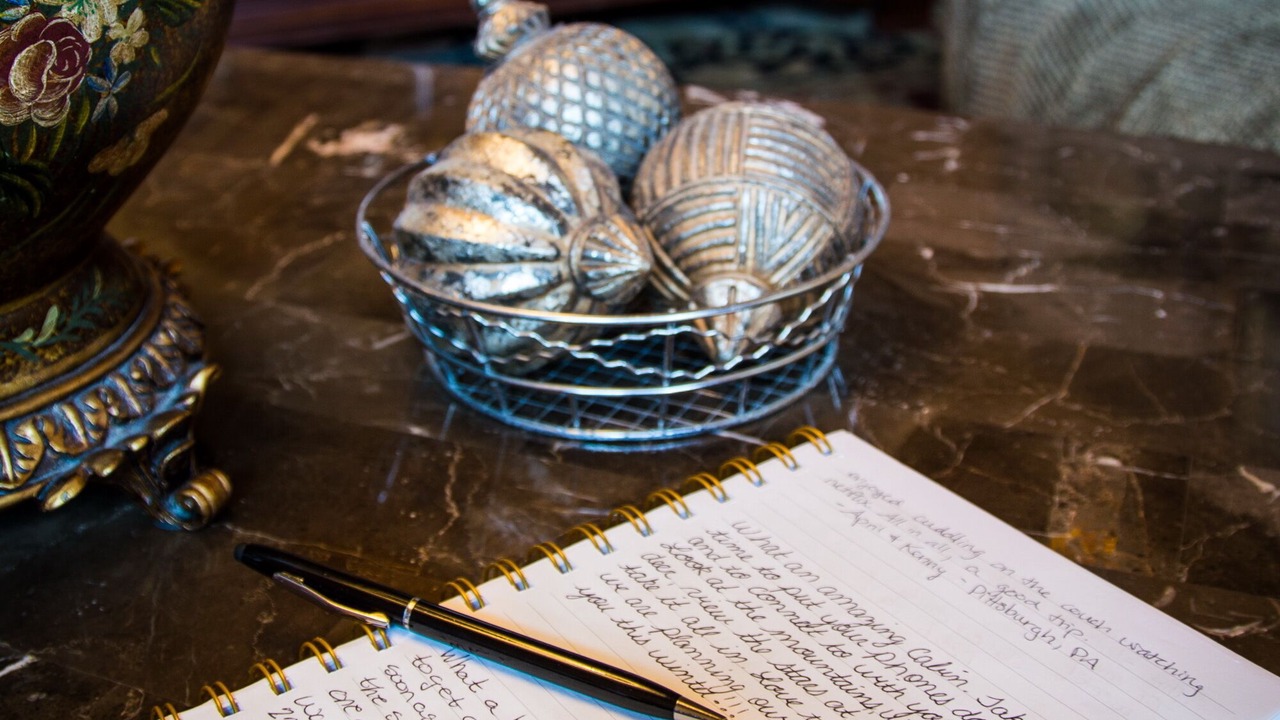 enjoyed cuddling on the couch watching
netflix. All in all, a good trip.
-April & Kenny - Pittsburgh, PA
What an amazing Cabin. Tak
time to put your phones do
and to connect to with yo
Look at the mountains,
deer, view the stars at
take it all in. love
we are planning our
you this
What a
to get a
soon as
the s
one
We
20